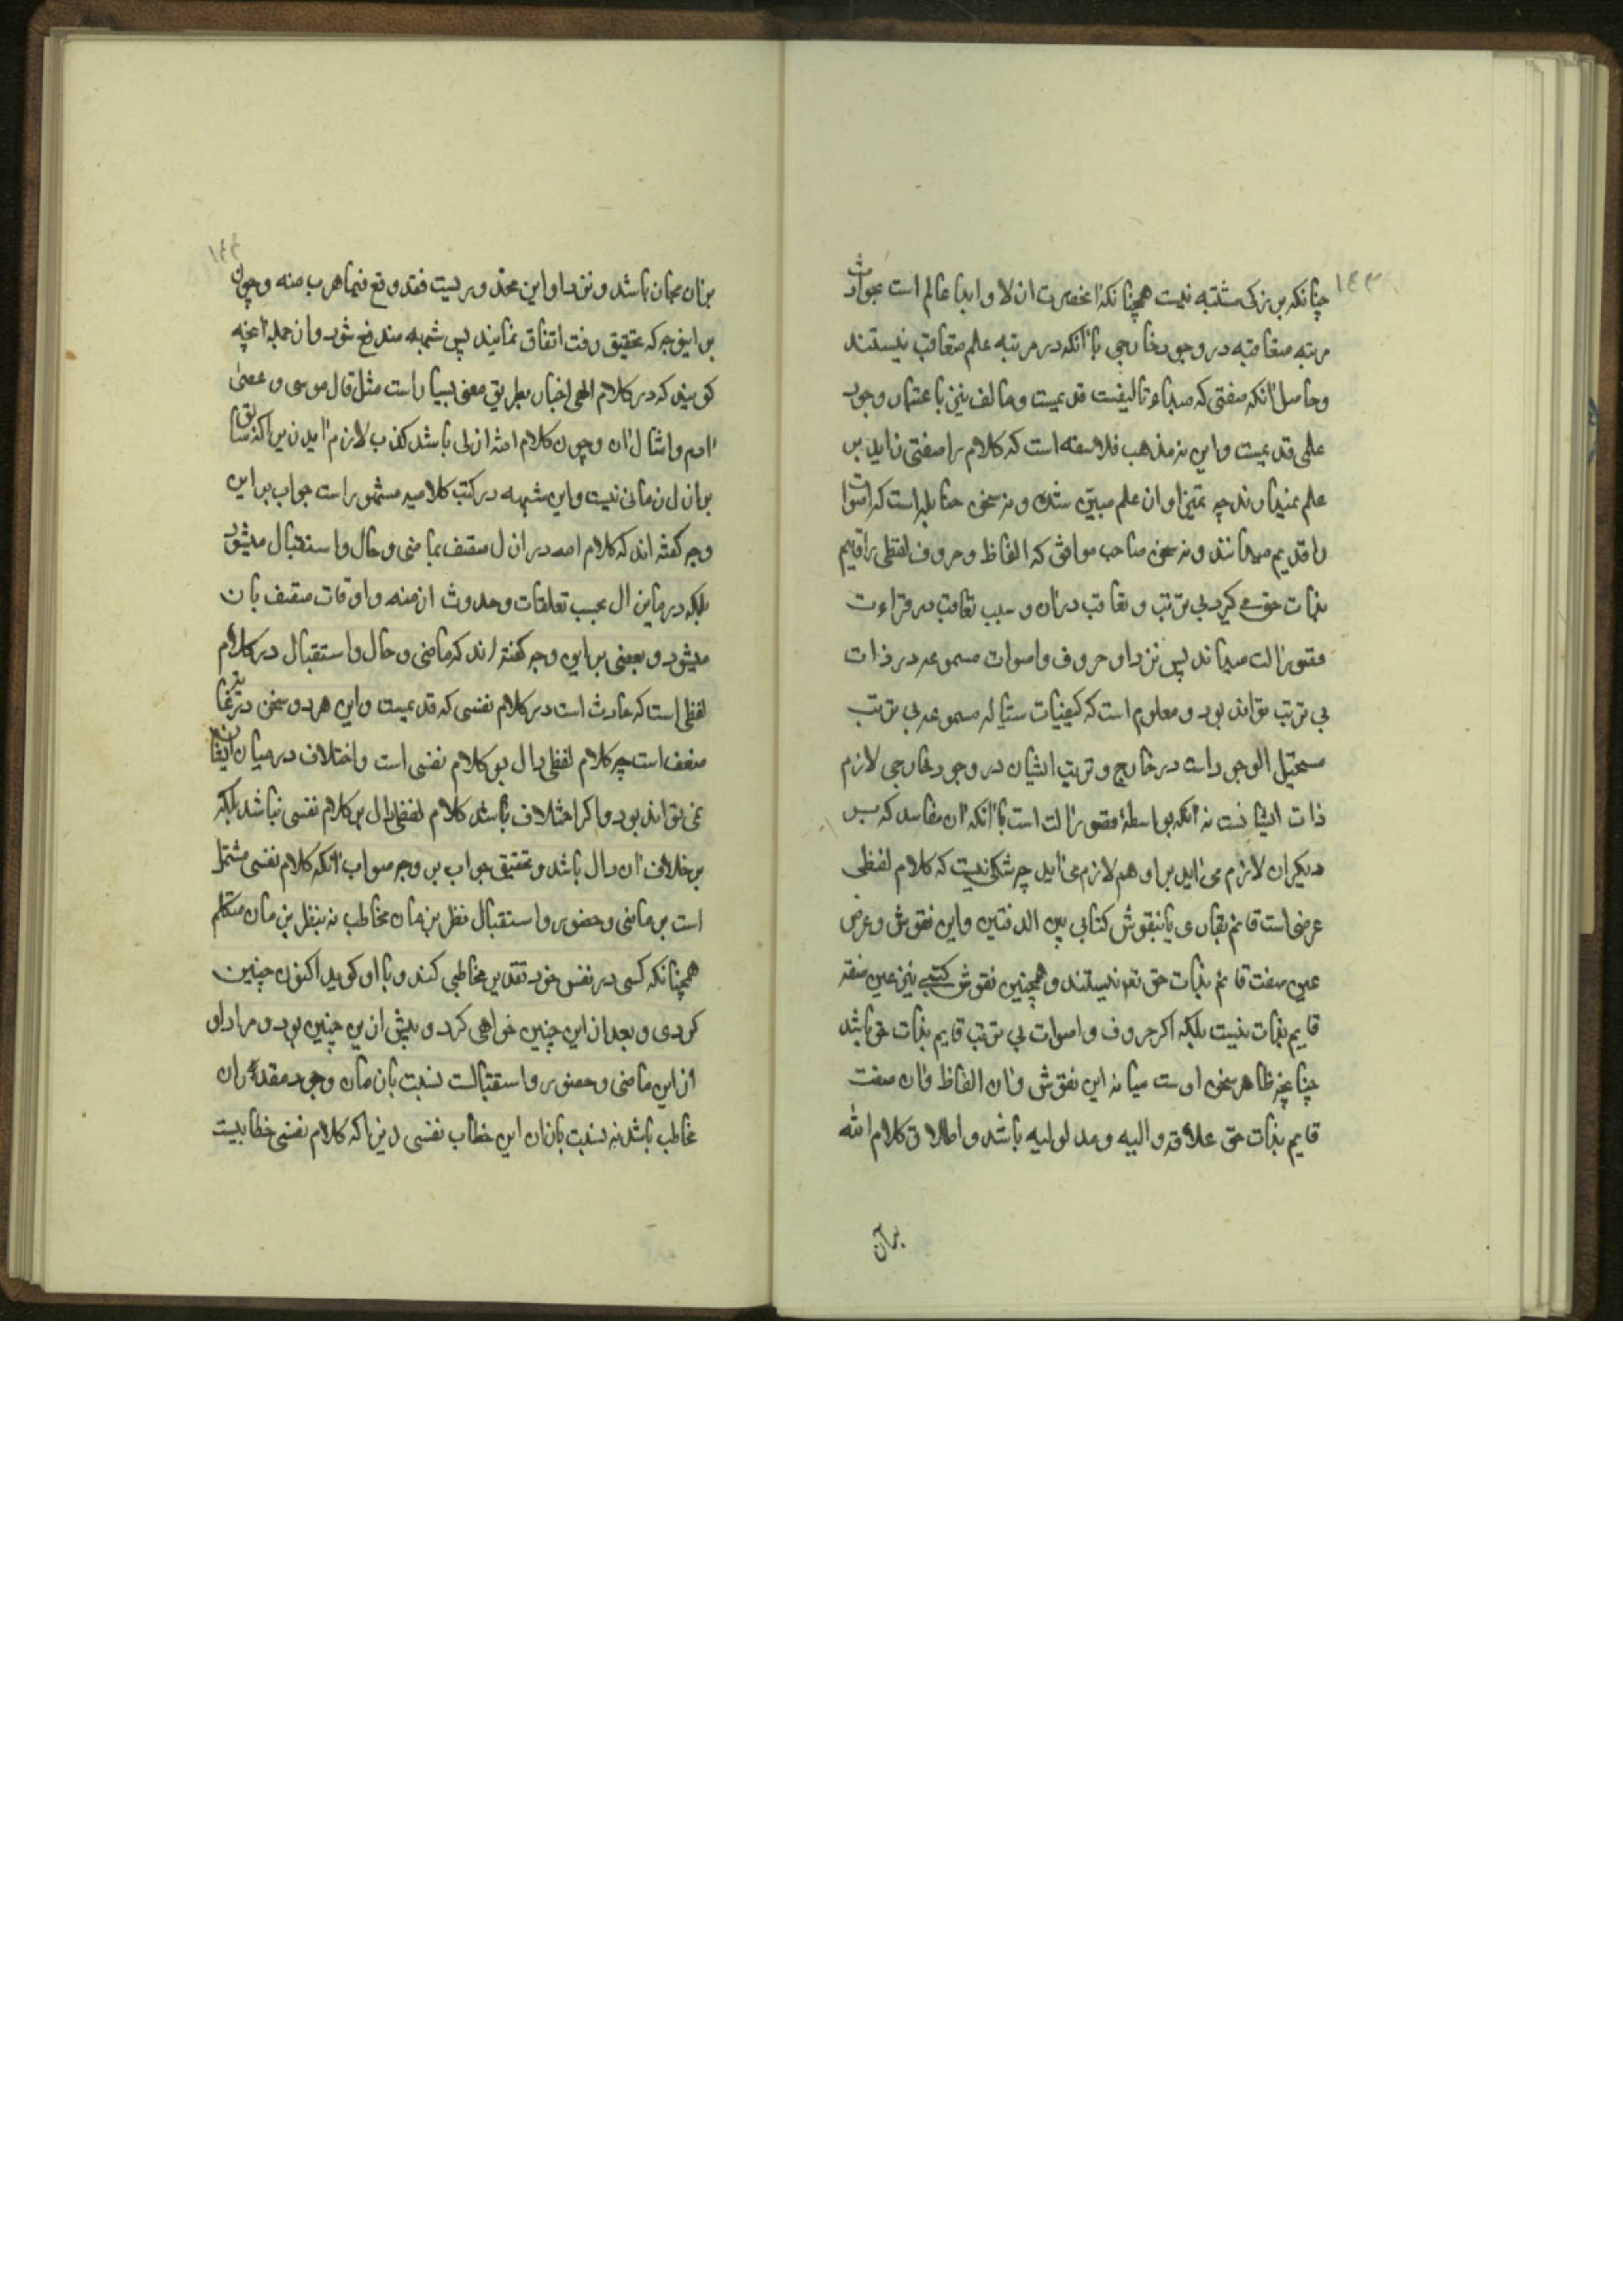 ۱۴۳
چنانکه بر زکی مشتبه نیست همچنانکه آنحضرت ازلا و ابدا عالم است بحوادث
مرتبه متعاقبه در وجود خارجی با آنکه در مرتبه علم متعاقب نیستند
و حاصل آنکه صفتی که مبداء تالیفست قدیمست و مالف نیز باعتبار وجود
علمی قدیمست و این نه مذهب فلاسفه است که کلام را صفتی زاید بر
علم نمیدارند چه تمیز او از علم مبین شد و نه سخن حنابله است که اصوات
را قدیم میدانند و نه سخن صاحب مواقف که الفاظ و حروف لفظی را قایم
بذات حق می کیرد بی ترتب و تعاقب در آن و سبب تعاقب در قراءت
قصور آلت میداند پس نزد او حروف و اصوات مسموعه در ذات
بی ترتب تواند بود و معلوم است که کیفیات سیاله مسموعه بی ترتب
مستحیل الوجود است در خارج و ترتیب ایشان در وجود خارجی لازم
ذات ایشانست نه آنکه بواسطهٔ قصور آلت است با آنکه آن مفاسد که بر
دیکران لازم می آید بر او هم لازم می آید چه شکی نیست که کلام لفظی
عرضی است قائم بقاری یا بنقوش کتابی بین الدفتین و این نقوش و عرض
عین صفت قائم بذات حق تعم نیستند و همچنین نقوش کتبی نیز عین صفة
قایم بذات نیست بلکه اکر حروف و اصوات بی ترتب قایم بذات حق باشد
چنانچه ظاهر سخن اوست میانه این نقوش و آن الفاظ و آن صفت
قایم بذات حق علاقه دالیه و مدلولیه باشد و اطلاق کلام الله
بر آن
۱۴۴
بر آن مجاز باشد و نزد او این محذوریست فقد وقع فیما هرب منه و چون
بر اینوجه که تحقیق رفت اتفاق نمایند پس شبهه مندفع شود و از جمله آنچه
کویند که در کلام الهی اخبار بطریق مضی بسیار است مثل قال موسی و عصی
آدم و امثال آن و چون کلام الله ازلی باشد کذب لازم آید زیراکه سابق
بر ازل زمانی نیست و این شبهه در کتب کلامیه مشهور است جواب بر این
وجه کفته اند که کلام الله در ازل متصف بماضی و حال و استقبال میشود
بلکه در ماین ال بحسب تعلقات و حدوث ازمنه و اوقات متصف بان
میشود و بعضی بر این وجه کفته اند که ماضی و حال و استقبال در کلام
لفظی است که حادث است در کلام نفسی که قدیمست و این هر دو سخن در غایة
ضعف است چه کلام لفظی دال بر کلام نفسی است و اختلاف در میان ایشان
نمی تواند بود و اکر اختلاف باشد کلام لفظی دال بر کلام نفسی نباشد بلکه
بر خلاف آن دال باشد و تحقیق جواب بر وجه صواب آنکه کلام نفسی مشتمل
است بر ماضی و حضور و استقبال نظر بزمان مخاطب نه بنظر بزمان متکلم
همچنانکه کسی در نفس خود تقدیر مخاطبی کند و با او کوید اکنون چنین
کردی و بعد از این چنین خواهی کرد و پیش از این چنین بود و مراد او
از این ماضی و حضور و استقبالست نسبت بازمان وجود مقدر آن
مخاطب باشد نه نسبت بازان این خطاب نفسی زیراکه کلام نفسی خطابیست